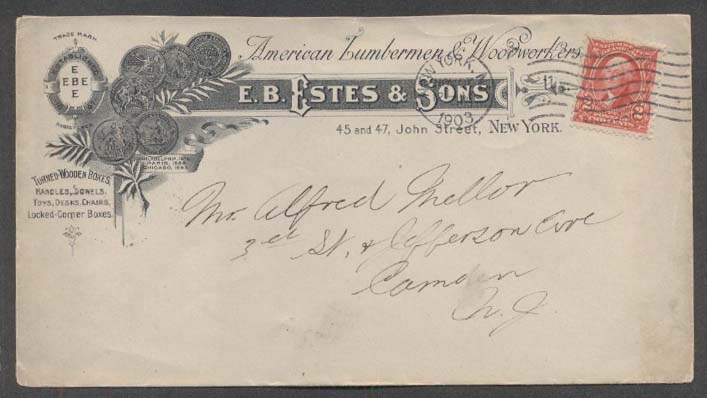 TRADE MARK
ESTABLISHED
E
EBE
E
American Lumbermen & Woodworkers.
E. B. ESTES & SONS
45 and 47, John Street, NEW YORK.
PHILADELPHIA, 1876.
PARIS, 1889.
CHICAGO, 1893.
TURNED WOODEN BOXES,
HANDLES, DOWELS,
TOYS, DESKS, CHAIRS,
Locked-Corner Boxes.
NEW YORK, N.Y.
1903
2 2
Mr. Alfred Mellor
3rd St. & Jefferson Ave
Camden
N.J.